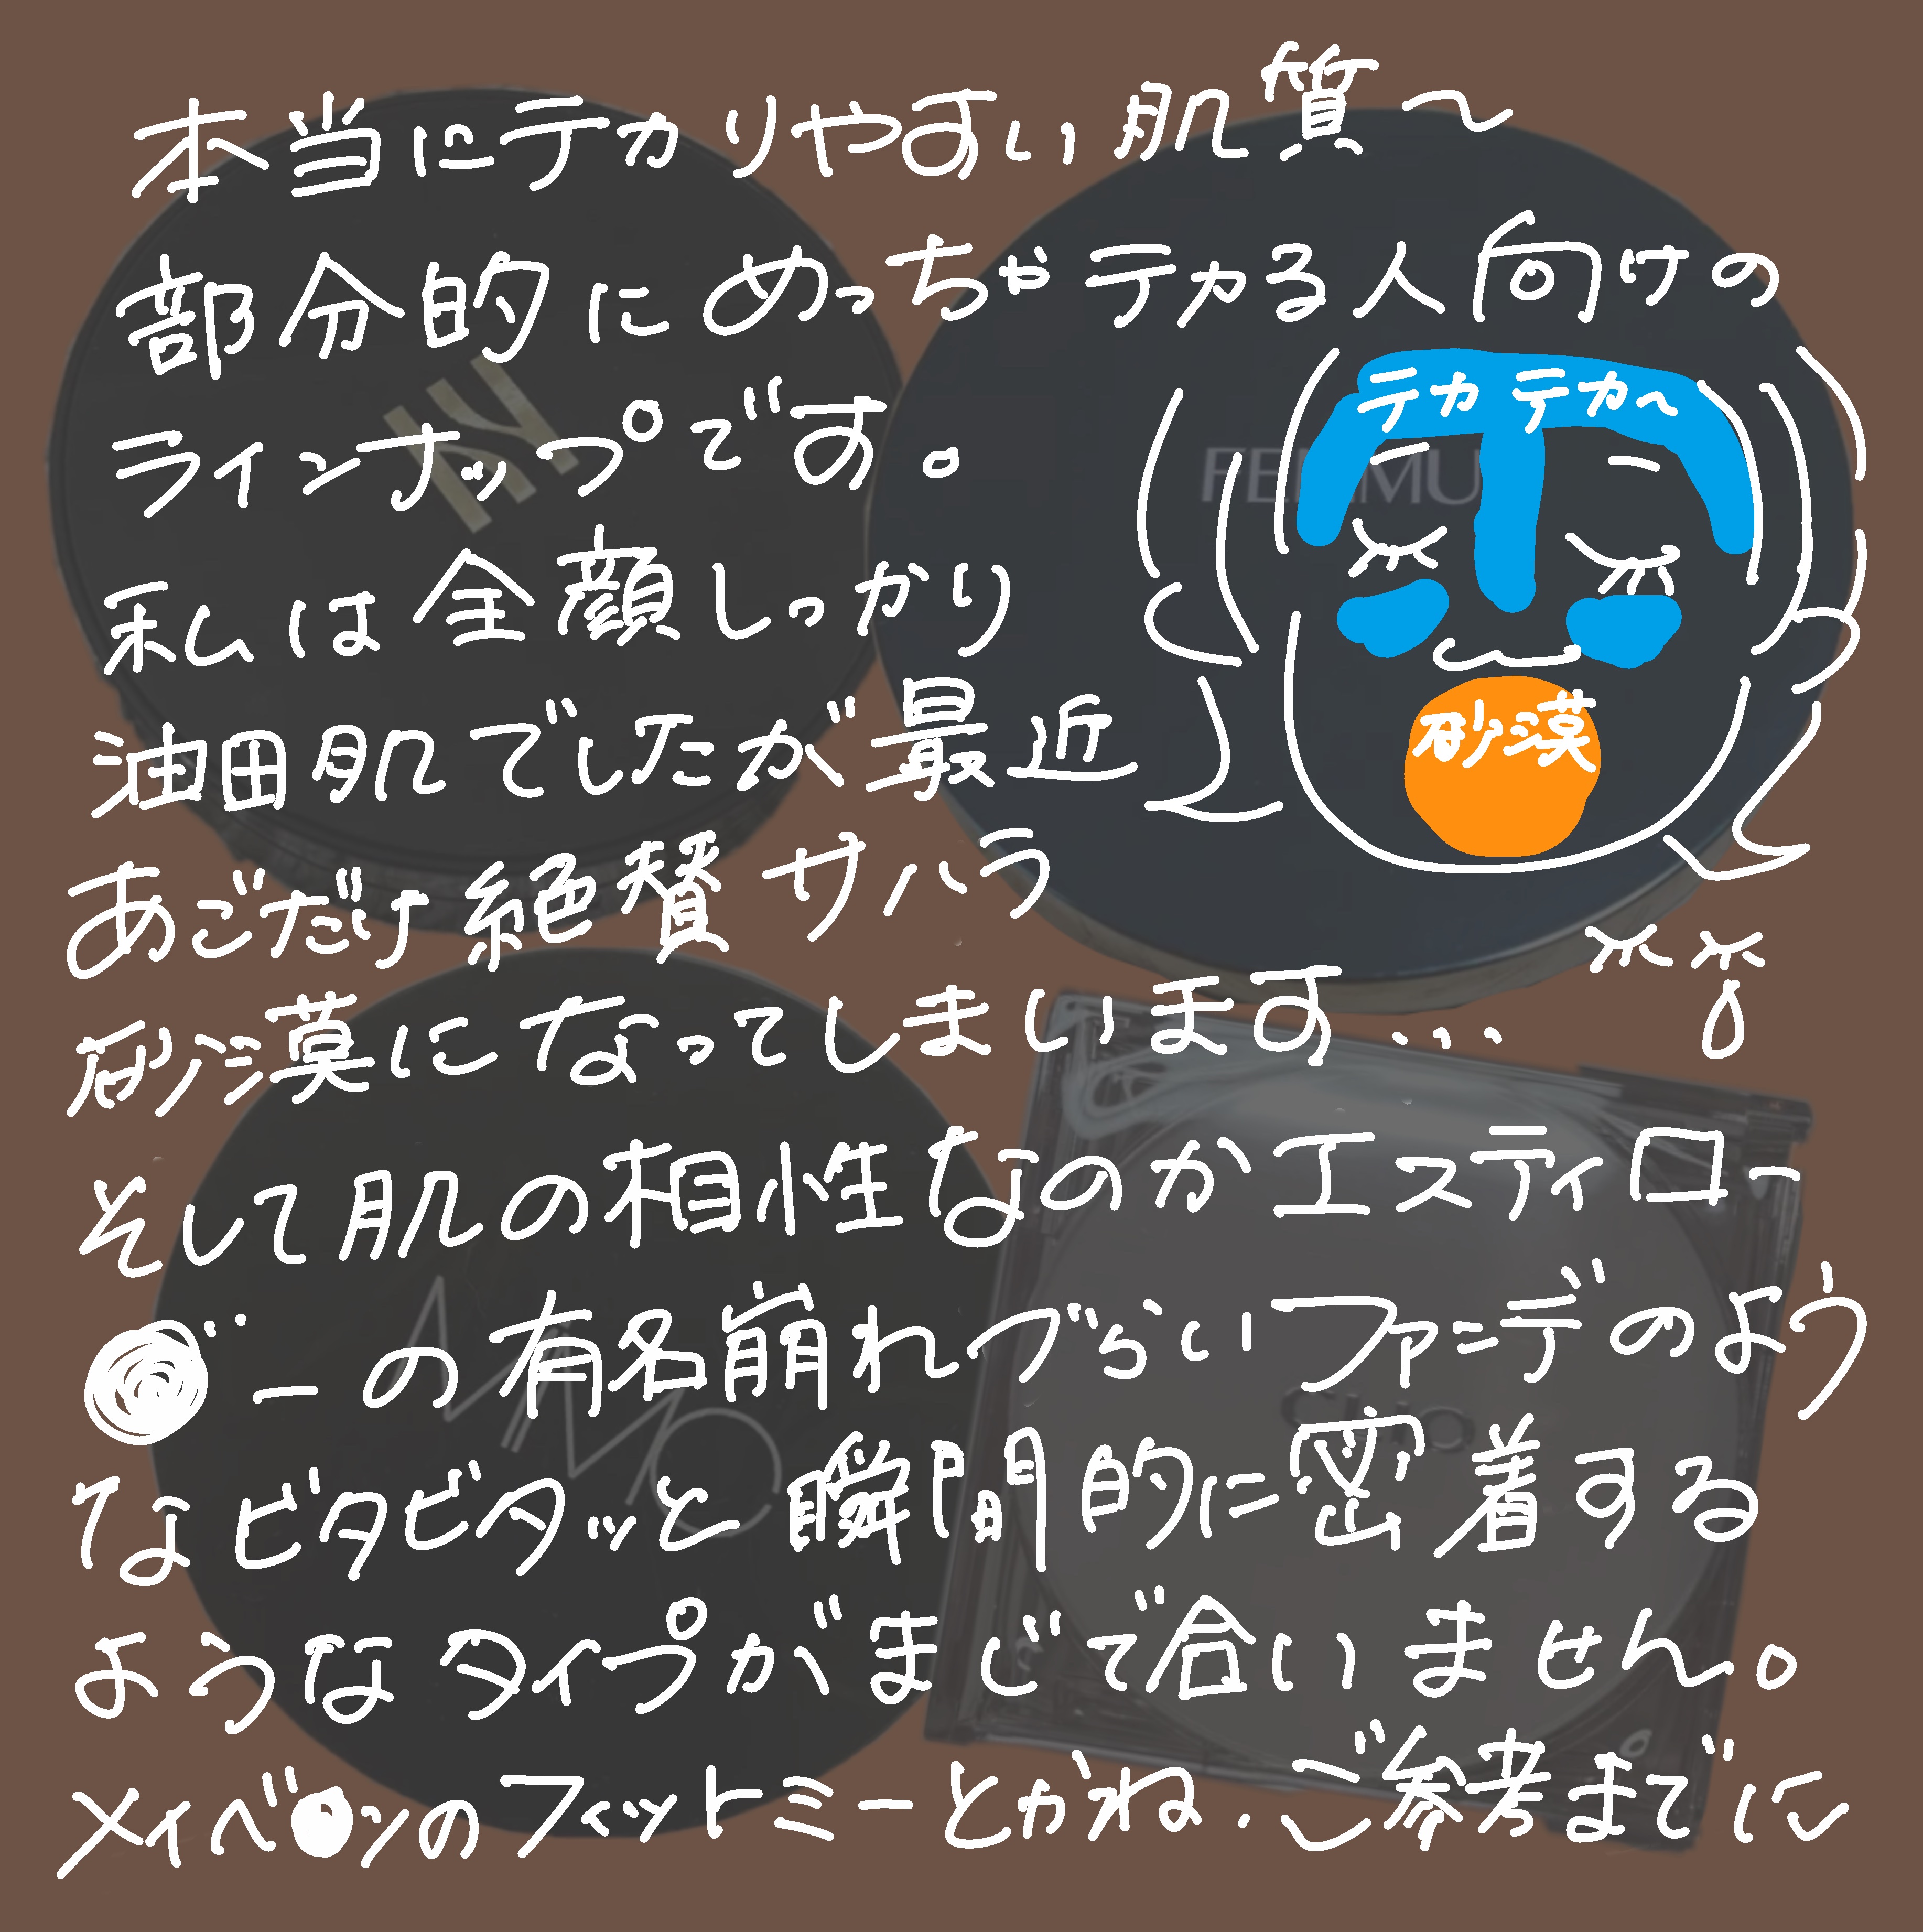 本当にテカりやすい肌質〜
部分的にめっちゃテカる人向けの
ラインナップです。
テカテカ〜
私は全顔しっかり
油田肌でしたが最近
砂漠
あごだけ絶賛サハラ
砂漠になってしまいます...
そして肌の相性なのかエスティロー
●゛ーの有名崩れづらいファンデのよう
なビタビタッと瞬間的に密着する
ようなタイプがまじで合いません。
メイベ●ンのフィットミーとかね..ご参考までに
MiMC
CLIO